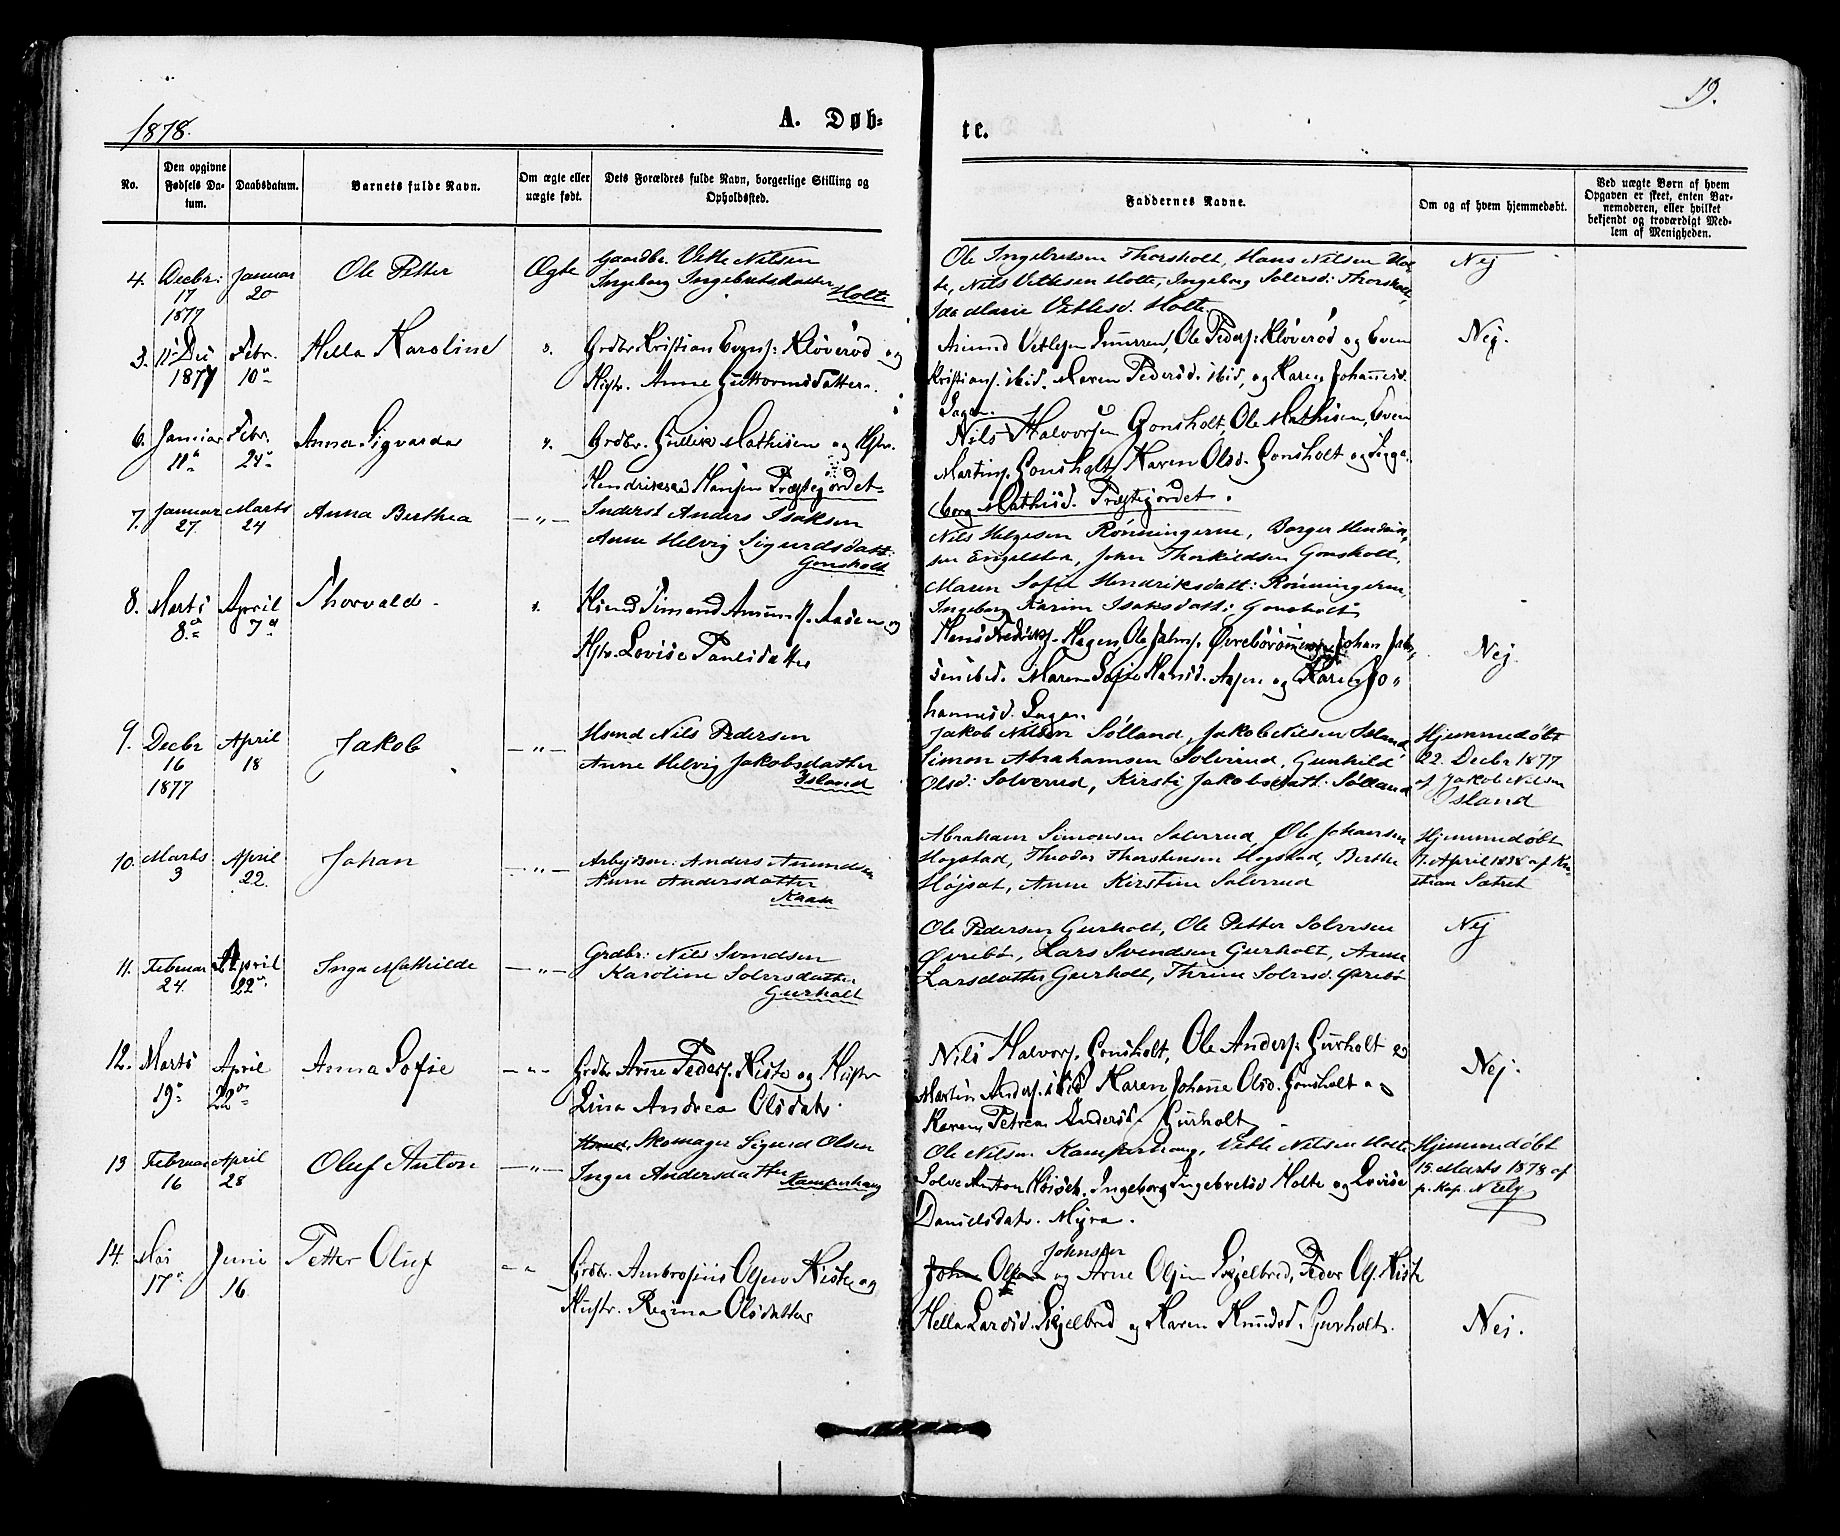 1878.
A. Døb-
te.
19.
No.
Den opgivne Fødsels Da-
tum.
Daabsdatum.
Barnets fulde Navn.
Om ægte eller
uægte født.
Dets Forældres fulde Navn, borgerlige Stilling og
Opholdssted.
Faddernes Navne.
Om og af hvem hjemmedøbt.
Ved uægte Børn af hvem
Opgaven er skeet, enten Bar-
nemoderen, eller hvilket
bekjendt og troværdigt Med-
lem af Menigheden.
4. Decbr: 17 1877
Januar 20
Ole Petter
Ægte
Gaardbr. Vetle Nilsen
Ingeborg Ingebretsdatter
Holte
Ole Ingebretsen Thorsholt, Hans Nilsen Hol-
te, Nils Vetlesen Holte, Ingeborg Solvesd: Thorsholt,
Ida Marie Vetlesd. Holte.
Nej
5. 11 Des 1877
Febr. 10
Hella Karoline
Grdbr. Kristian Evens: Kløverød og
Hstr. Anne Guttormsdatter.
Amund Vetlesen, Ole Peders: Kløverød og Even
Kristians. ibid. Maren Pedersd. ibid, og Karen Johannesd.
Lagen.
Nej.
6. Januar 11
Febr. 24
Anna Sigvarda
Grdbr. Gullik Mathisen og Hstr.
Hendrikke Hansen Præstejordet
Nils Halvorsen Gonsholt, Ole Mathisen, Even
Martins. Gonsholt, Karen Olsd. Gonsholt og Inge-
borg Mathisd. Præstejordet.
7. Januar 27
Marts 24
Anna Berthea
— „ —
Inderst Anders Isaksen
Anne Helvig Sigurdsdatt:
Gonsholt
Nils Helgesen Rønningerne, Borger Hendrik-
sen Engelsten, John Thorkildsen Gonsholt,
Maren Sofie Hendriksdatt: Rønningerne,
Ingeborg Karine Isaksdatt: Gonsholt
8. Marts 8
April 7
Thorvald
Hsmd Simend Amunds. Aasen og
Hstr. Lovise Paulsdatter
Hans Fredriks. Hagen, Ole Johns. Øvrebørønningen, Johan Joh-
sen ibid. Maren Sofie Hansd. Aasen og Karen Jo-
hannesd. Lagen.
Nej.
9. Decbr 16 1877
April 18
Jakob
— „ —
Hsmd Nils Pedersen
Anne Helvig Jakobsdatter
Island
Jakob Nilsen Sølland, Jakob Nilsen Island
Simon Abrahamsen Solverud, Gunhild
Olsd: Solverud, Kirsti Jakobsdatt: Sølland
Hjemmedøbt
22. Decbr 1877
af Jakob Nilsen
Island
10. Marts 3
April 22.
Johan
— „ —
Arbejdsm: Anders Amundsen
Anne Andersdatter
Kaasa
Abraham Simonsen Solverud, Ole Johansen
Hogstad, Theodor Thorstensen Hogstad, Berthe
Højsæt, Anne Kirstine Solverud
Hjemmedøbt
7. April 1878 af Kri-
stian Sætret
11. Februar 24.
April 22
Inga Mathilde
— „ —
Grdbr: Nils Svendsen
Karoline Solvesdatter
Gurholt
Ole Pedersen Gurholt, Ole Petter Solvesen
Øvrebø, Lars Svendsen Gurholt, Anne
Larsdatter Gurholt, Thrine Solvesd. Øvrebø
Nej
12. Marts 19
April 22
Anna Sofie
— „ —
Grdbr Arne Peders. Kiste og Hustr
Lina Andrea Olsdatr.
Nils Halvors. Gonsholt, Ole Anders: Gurholt og
Martin Anders. ibid Karen Johanne Olsd. Gonsholt og
Karen Petrea Andersd. Gurholt
Nej.
13 Februar 16
April 28
Oluf Anton
— „ —
Hsmd. Skomager Sigurd Olsen
Inger Andersdatter
Kamperhaug
Ole Nilsen Kamperhaug, Vetle Nilsen Holte
Solve Anton Høiseth. Ingeborg Ingebretsd Holte og Lovise
Danielsdatr. Myra.
Hjemmedøbt
15. Marts 1878 af
p. Kap. Neely
14. Mai 17
Juni 16
Petter Oluf
" "
Grdbr. Ambrosius Olsen Kiste og
Hustr. Regina Olsdatter
Johnsen
John Olsen og Arne Olsen Skjelbred, Peder Ols. Kiste
Hella Larsd. Skjelbred og Karen Knudsd. Gurholt.
Nei.